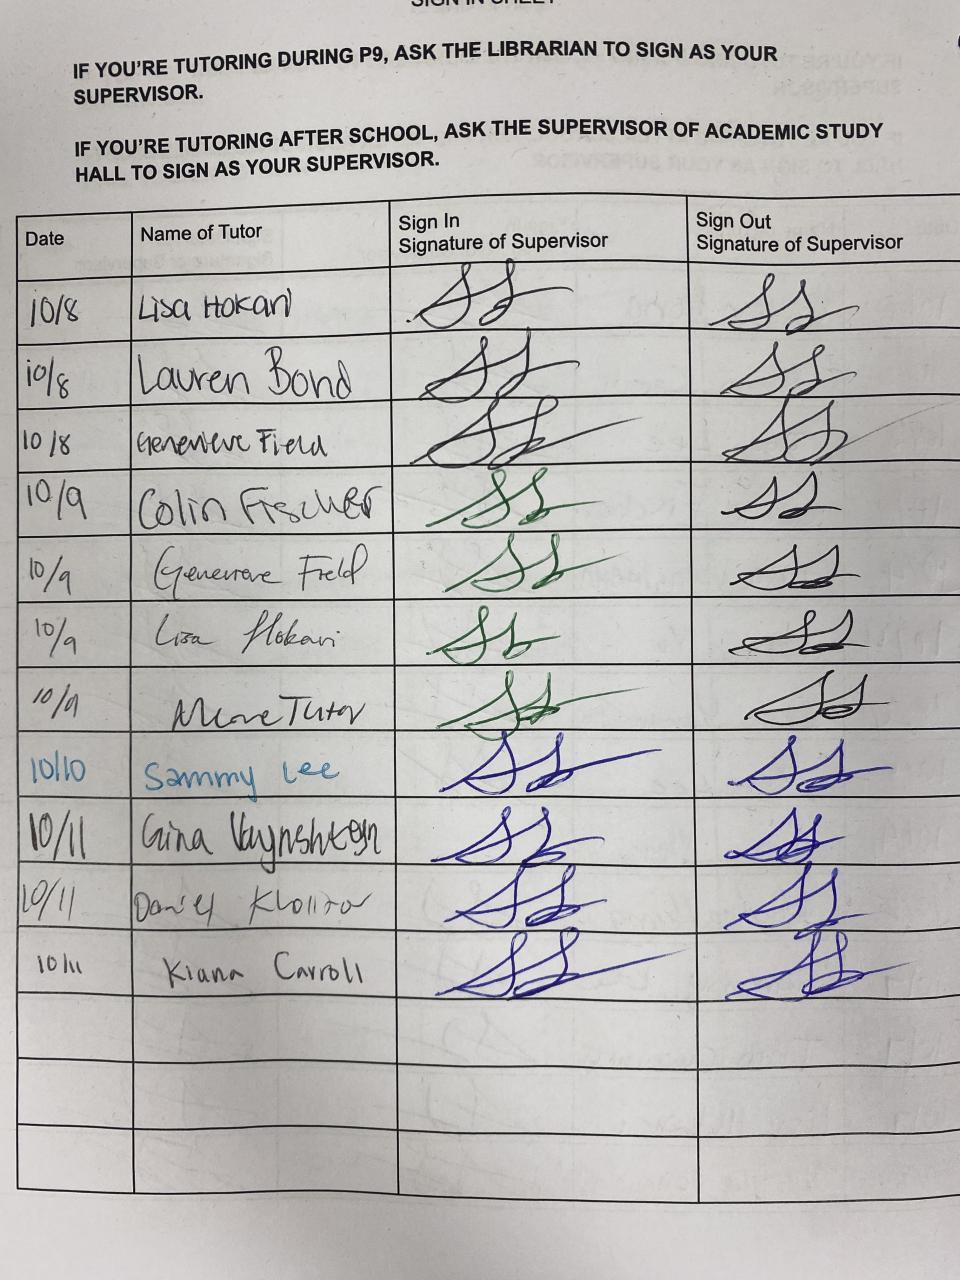 SIGN IN SHEET
IF YOU'RE TUTORING DURING P9, ASK THE LIBRARIAN TO SIGN AS YOUR
SUPERVISOR.
IF YOU'RE TUTORING AFTER SCHOOL, ASK THE SUPERVISOR OF ACADEMIC STUDY
HALL TO SIGN AS YOUR SUPERVISOR.
Date Name of Tutor Sign In Signature of Supervisor Sign Out Signature of Supervisor
10/8 Lisa Hokari
10/8 Lauren Bond
10/8 Genevieve Field
10/9 Colin Fischer
10/9 Genevieve Field
10/9 Lisa Hokari
10/9 Tutor
10/10 Sammy Lee
10/11 Gina Vaynshteyn
10/11 Daniel
10/11 Kiana Carroll